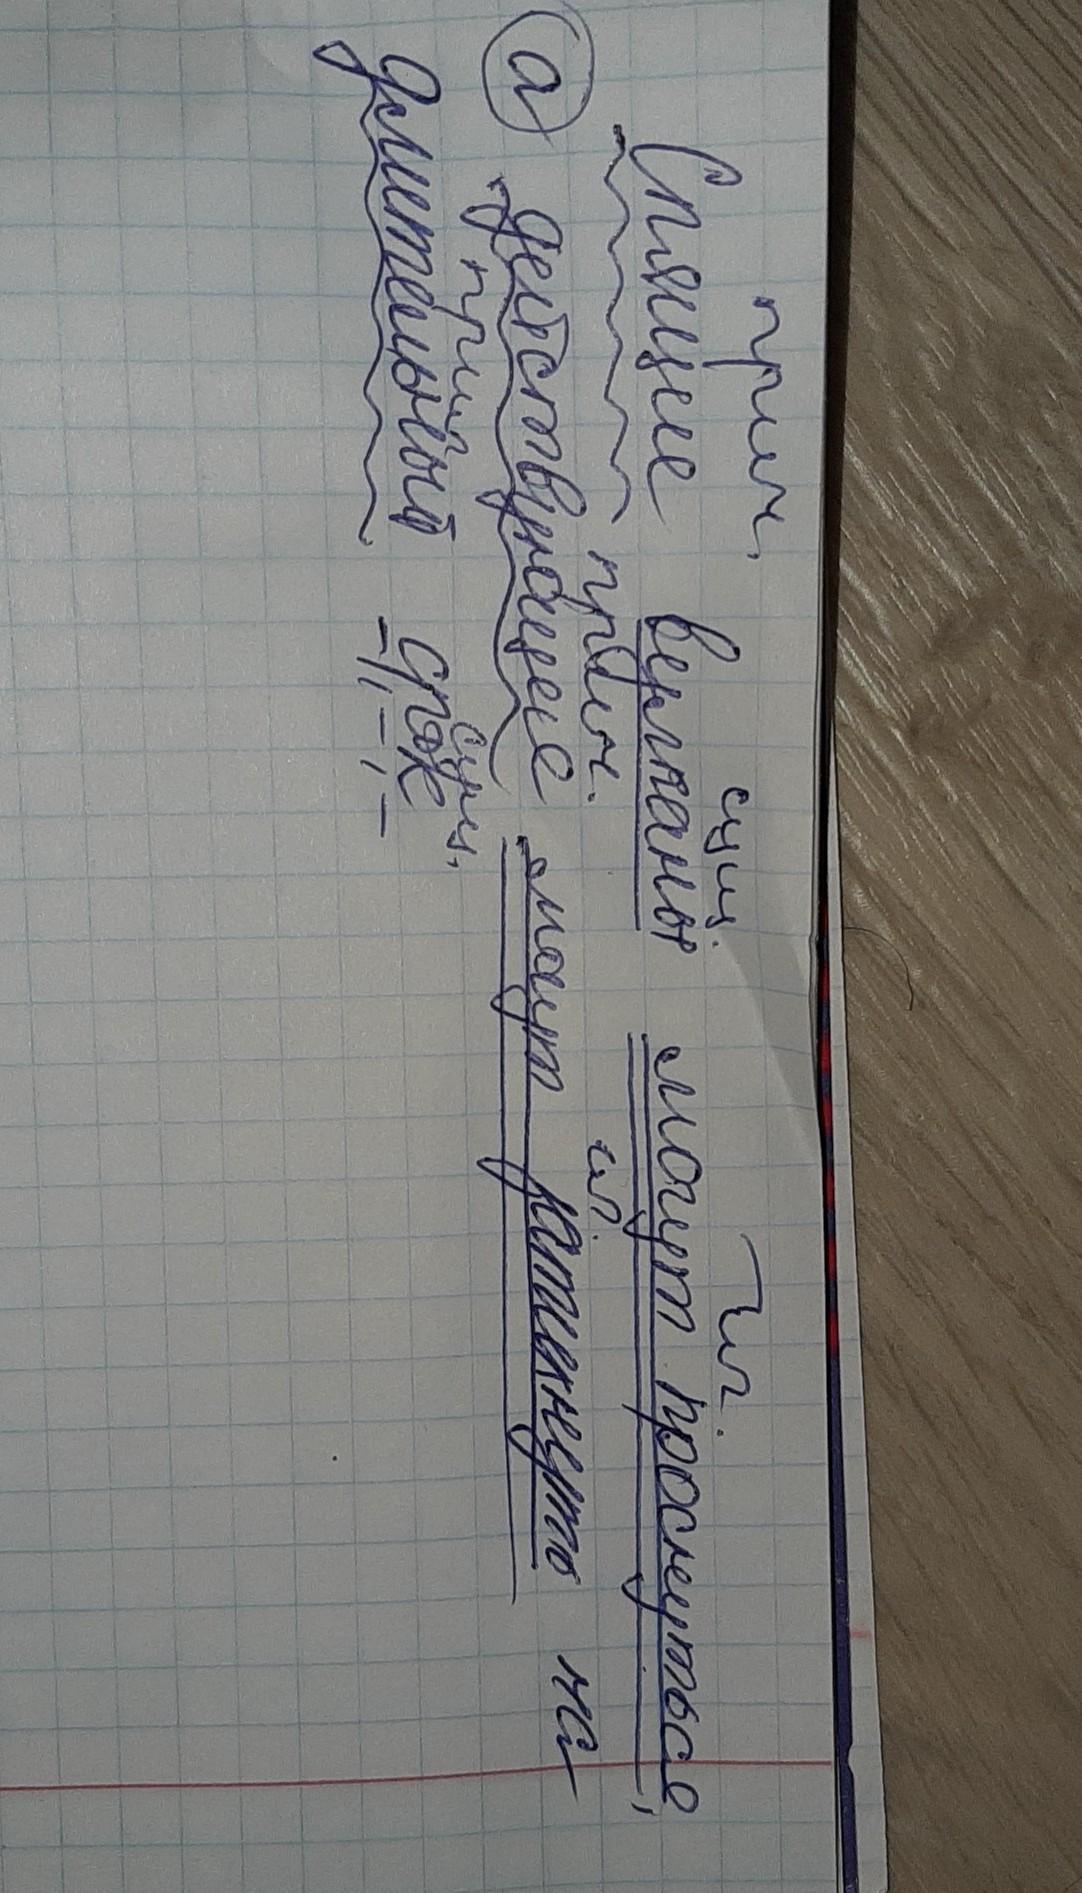 прич. сущ. гл.
Спящие вулканы могут проснуться,
прич. гл
а действующие могут утихнуть на
прил сущ.
длительный срок